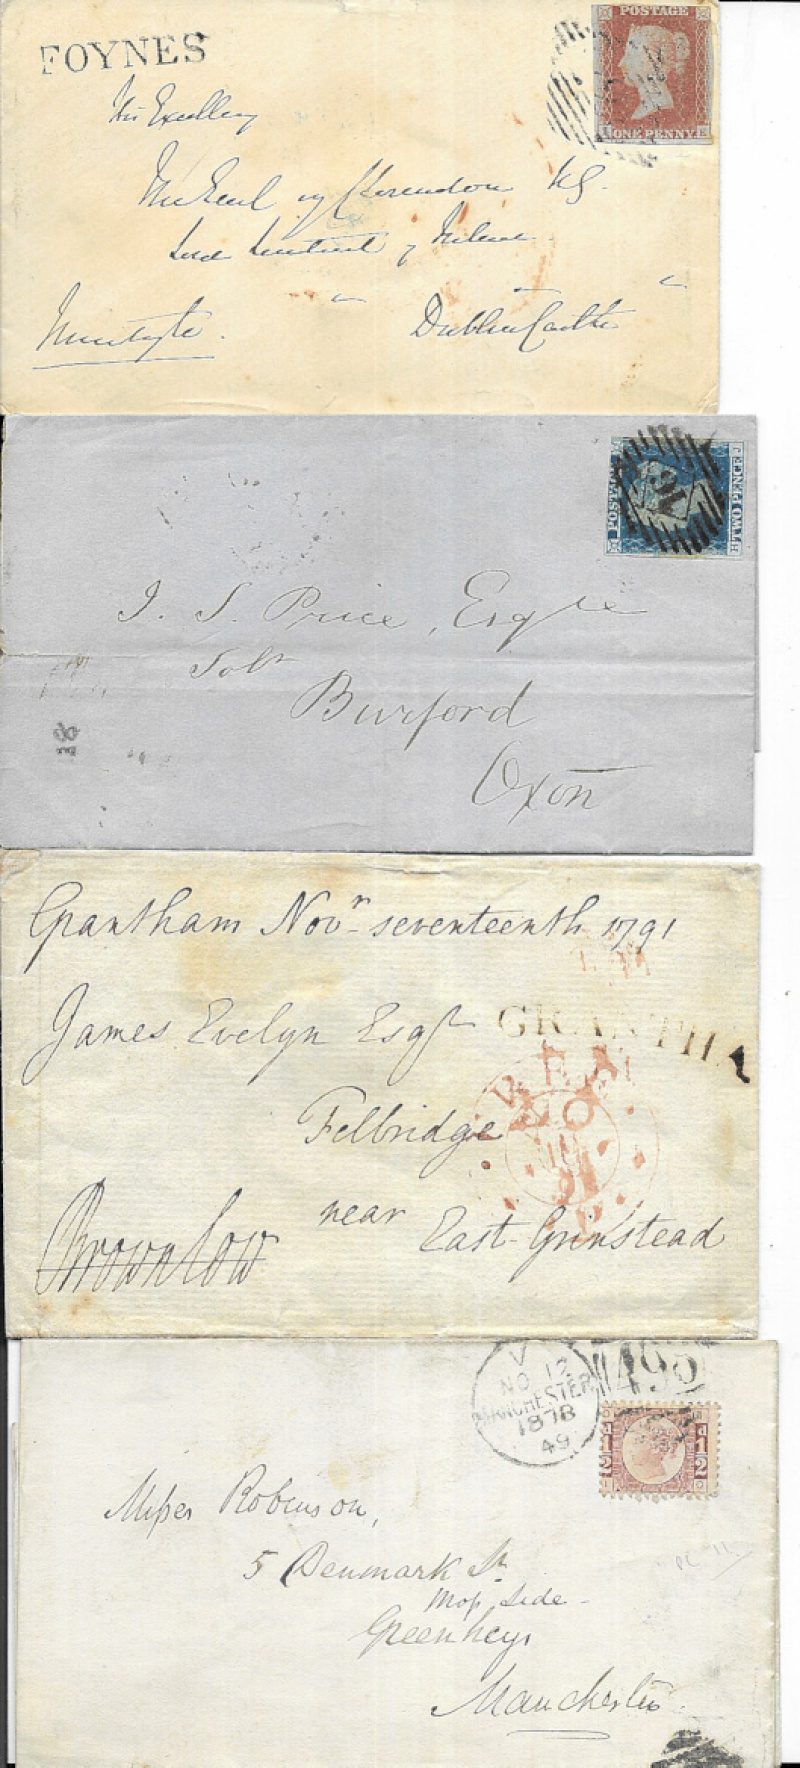 FOYNES
POSTAGE
ONE PENNY
I E
His Excellency
The Earl of Clarendon KG.
Lord Lieutenant of Ireland
Dublin Castle
POSTAGE
TWO PENCE
J. S. Price, Esqre
Solr
Burford
Oxon
Grantham Novr seventeenth 1791
James Evelyn Esqr
GRANTHA
Felbridge
near East Grinstead
Brownlow
V
NO 12
MANCHESTER
1878
49
498
Misses Robinson,
5 Denmark St
Moss Side
Greenheys
Manchester